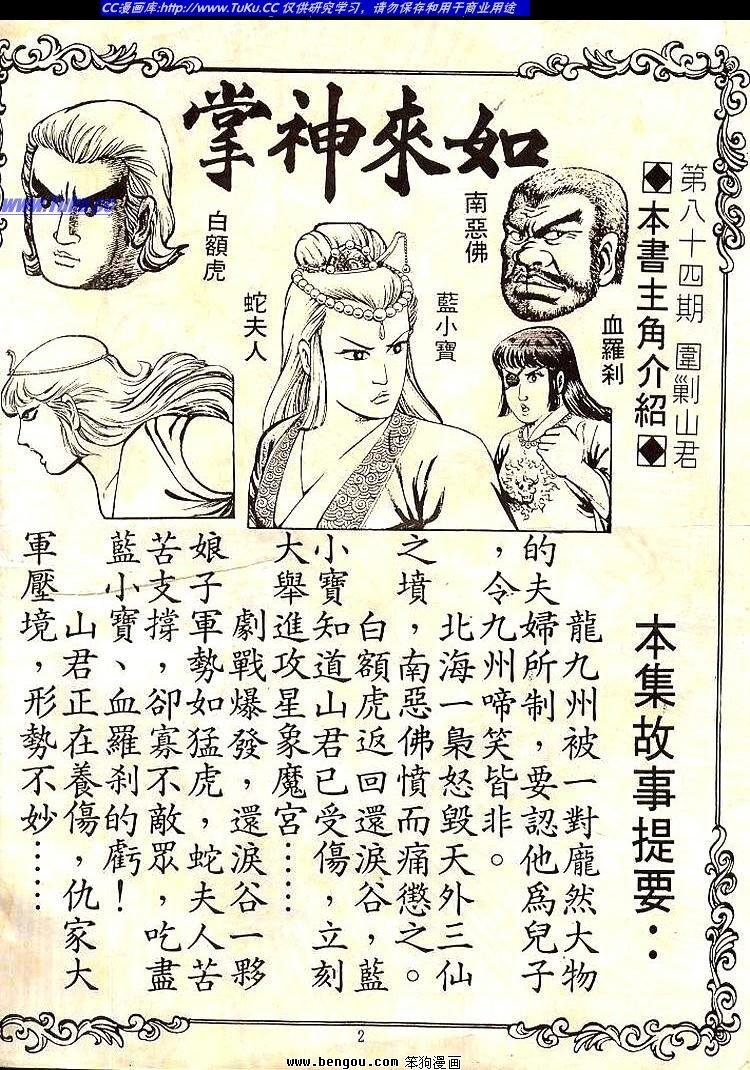 CC漫画库:http://www.TuKu.CC 仅供研究学习，请勿保存和用于商业用途
如來神掌
第八十四期 圍剿山君
◆本書主角介紹◆
血羅刹
南惡佛
藍小寶
蛇夫人
白額虎
www.TuKu.cc
本集故事提要：
龍九州被一對龐然大物
的夫婦所制，要認他爲兒子
，令九州啼笑皆非。
北海一梟怒毀天外三仙
之墳，南惡佛憤而痛懲之。
白額虎返回還淚谷，藍
小寶知道山君已受傷，立刻
大舉進攻星象魔宮……
劇戰爆發，還淚谷一夥
娘子軍勢如猛虎，蛇夫人苦
苦支撐，卻寡不敵眾，吃盡
藍小寶、血羅刹的虧！
山君正在養傷，仇家大
軍壓境，形勢不妙……
2
www.bengou.com 笨狗漫画